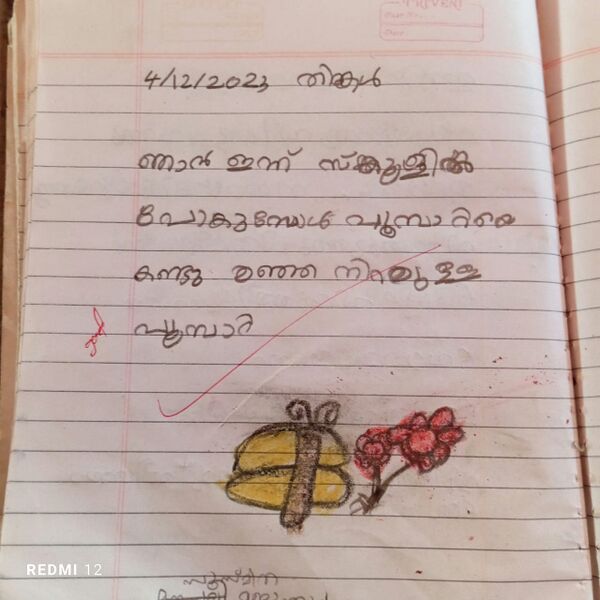 4/12/2023 തിങ്കൾ
ഞാൻ ഇന്ന് സ്ക്കൂളിൽ
പോകുമ്പോൾ പൂമ്പാറ്റയെ
കണ്ടു മഞ്ഞ നിറമുള്ള
പൂമ്പാറ്റ
സുസ്മിത
REDMI 12